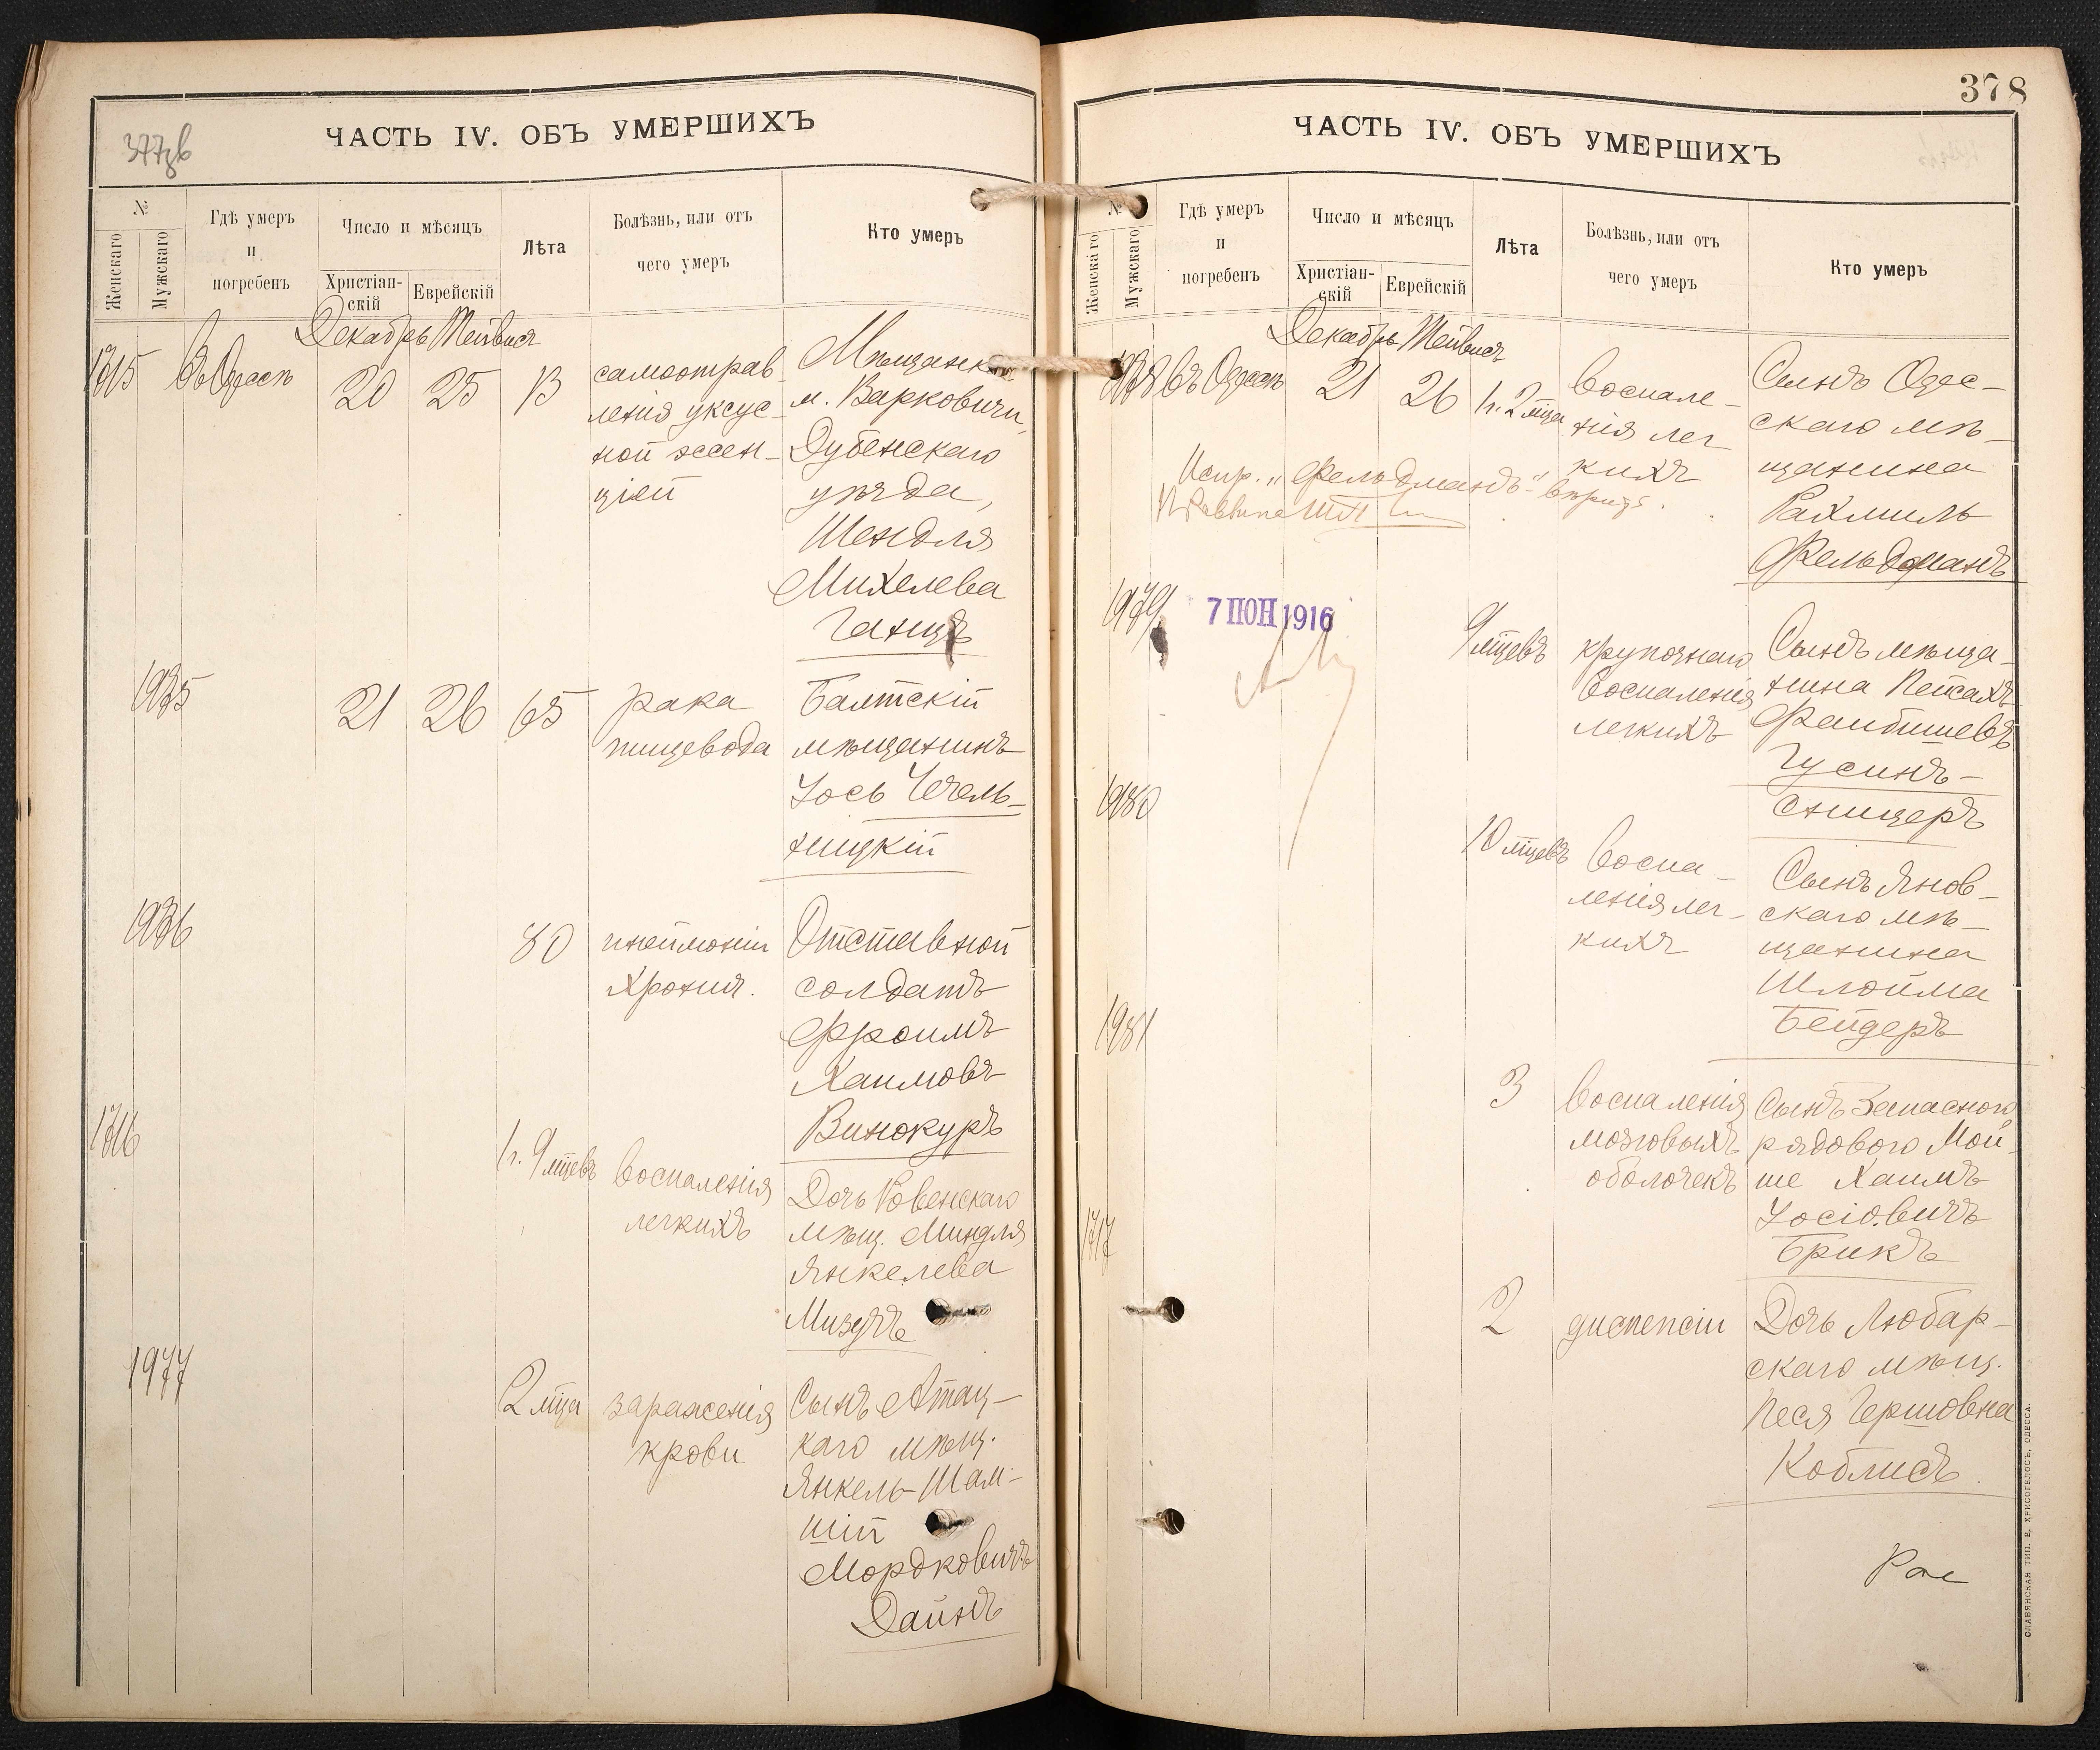 377зв
ЧАСТЬ IV. ОБЪ УМЕРШИХЪ
№
Женскаго
Мужскаго
Гдѣ умеръ
и
погребенъ
Число и мѣсяцъ
Христіан-
скій
Еврейскій
Лѣта
Болѣзнь, или отъ
чего умеръ
Кто умеръ
Декабрь Тейвисъ
1715
Въ Одессѣ
20
25
самоотрав-
ленія уксус-
ной эссен-
ціей
Мѣщанка
м. Варковичи,
Дубенскаго
уѣзда,
Шендля
Михелева
Ганцъ
21
26
65
рака
пищевода
Балтскій
мѣщанинъ
Іось Чечель-
ницкій
80
пнеймоніи
хронич.
Отставной
солдатъ
Фроимъ
Хаимовъ
Винокуръ
1716
1г. 9 мцевъ
воспаленія
легкихъ
Дочь Ровенскаго
мѣщ. Миндля
Янкелева
1977
2 мца
зараженія
крови
Сынъ Атац-
каго мѣщ.
Янкель-Шам-
шій
Мордковичъ
Дайнъ
378
ЧАСТЬ IV. ОБЪ УМЕРШИХЪ
№
Женскаго
Мужскаго
Гдѣ умеръ
и
погребенъ
Число и мѣсяцъ
Христіан-
скій
Еврейскій
Лѣта
Болѣзнь, или отъ
чего умеръ
Кто умеръ
Декабрь Тейвисъ
въ Одессѣ
21
26
1г. 2 мца
воспале-
нія лег-
кихъ
Сынъ Одес-
скаго мѣ-
щанина
Рахмиль
Фельдманъ
Испр. „Фельдманъ“ вѣрно.
1979
7 ІЮН 1916
9 мцевъ
крупознаго
воспаленія
легкихъ
Сынъ мѣща-
нина Пейсахъ
Фаибишевъ
Гусинъ-
Сницеръ
1980
10 мцевъ
воспа-
ленія лег-
кихъ
Сынъ Янов-
скаго мѣ-
щанина
Шлойма
Бейдеръ
1981
3
воспаленія
мозговыхъ
оболочекъ
Сынъ Запаснаго
рядового Мой-
ше Хаимъ
Іосіовичъ
Брикъ
1717
2
диспепсіи
Дочь Любар-
скаго мѣщ.
Песя Гершовна
Коблисъ
СЛАВЯНСКАЯ ТИП. Е. ХРИСОГЕЛОСЪ, ОДЕССА.